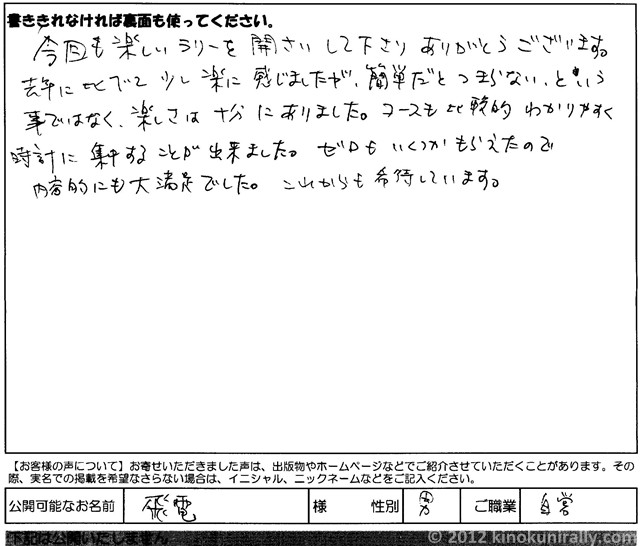 書ききれなければ裏面も使ってください。
今回も楽しいラリーを開さいして下さりありがとうございます。
去年に比べて少し楽に感じましたが、簡単だとつまらない、という
事ではなく、楽しさは十分にありました。コースも比較的わかりやすく
時計に集中することが出来ました。ゼロもいくつかもらえたので
内容的にも大満足でした。これからも希待しています。
【お客様の声について】お寄せいただきました声は、出版物やホームページなどでご紹介させていただくことがあります。その
際、実名での掲載を希望なさらない場合は、イニシャル、ニックネームなどをご記入ください。
公開可能なお名前 飛電 様 性別 男 ご職業 自営
下記は公開いたしません
© 2012 kinokunirally.com